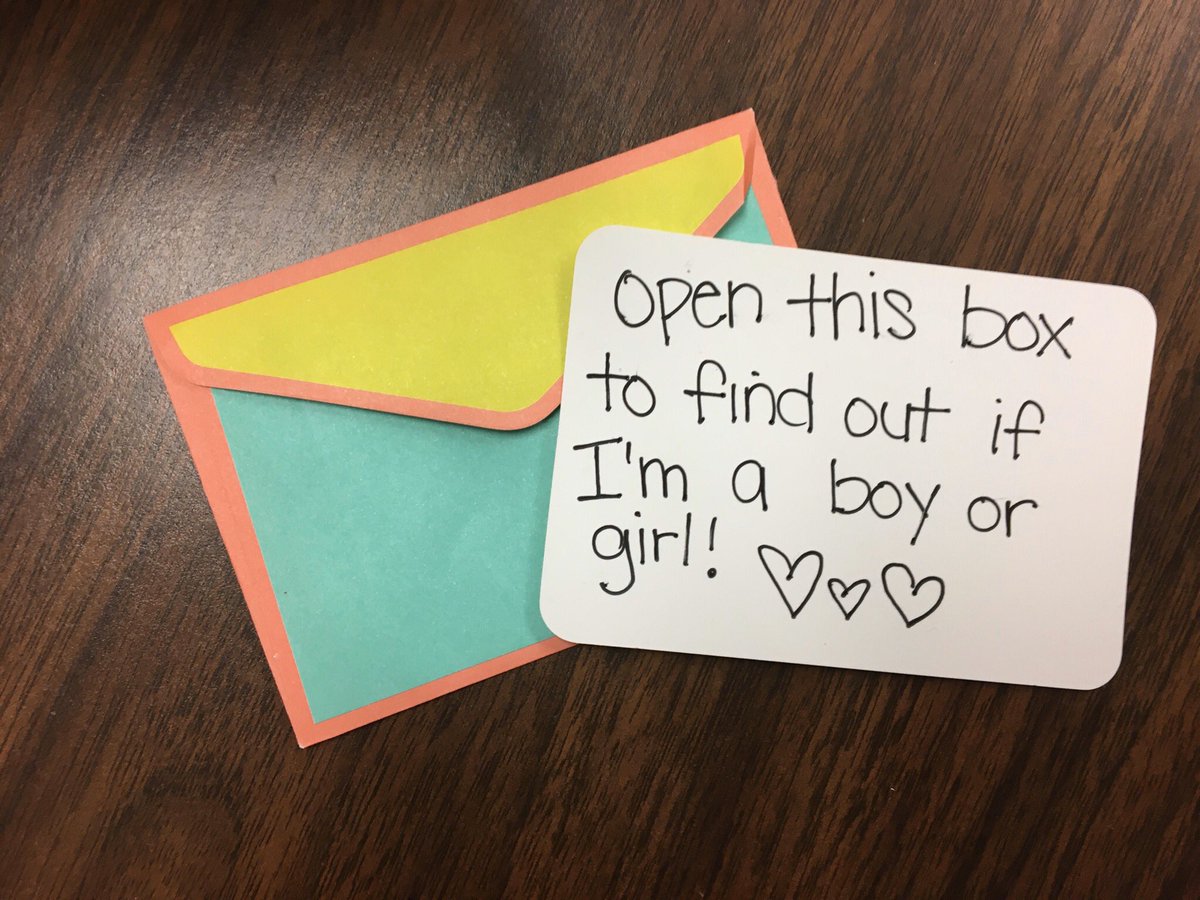 Open this box
to find out if
I'm a boy or
girl! ♡♡♡